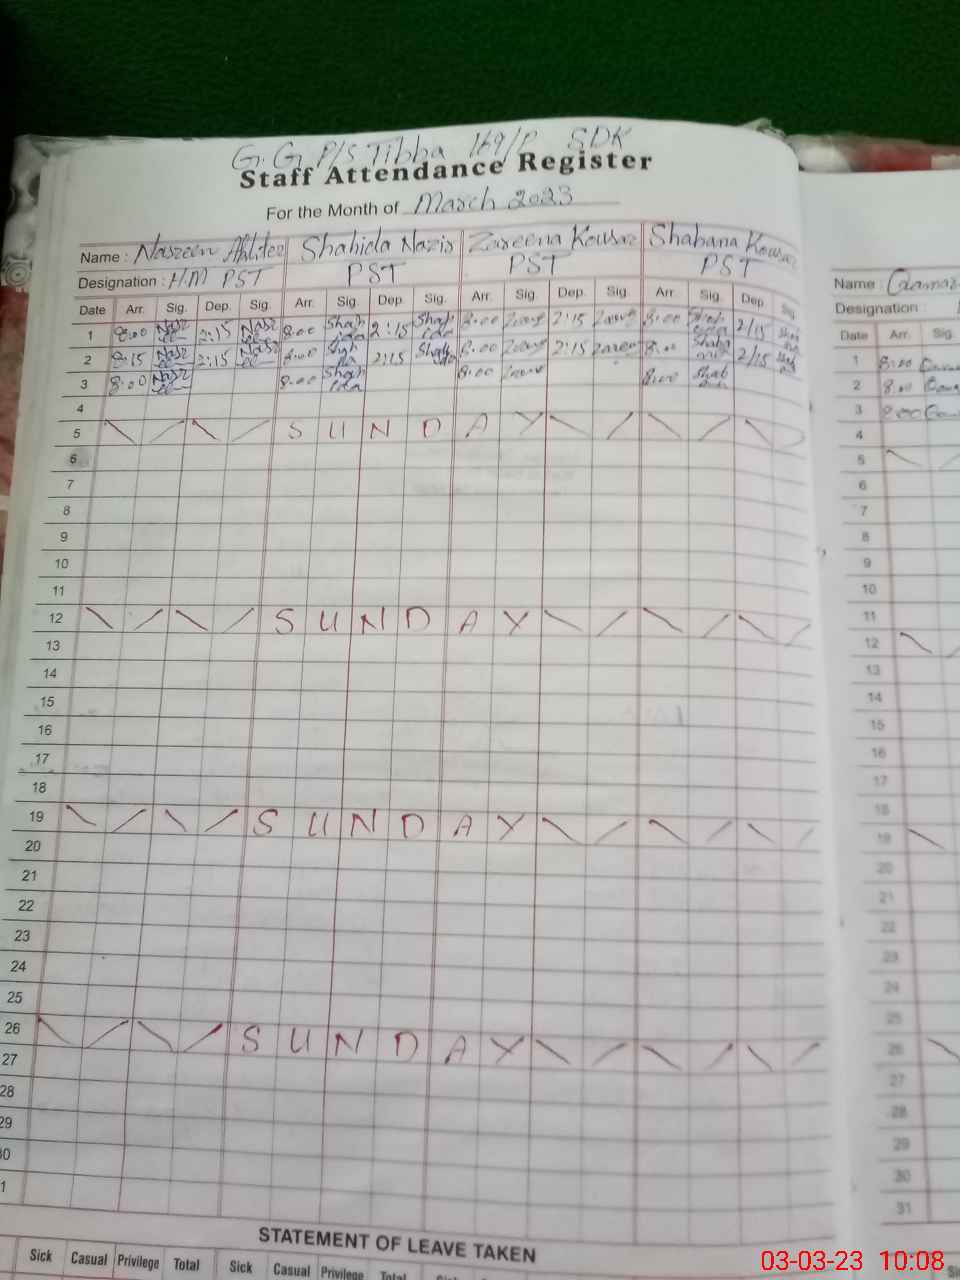 G.G P/S Tibba 169/P SDK
Staff Attendance Register
For the Month of March 2023
Name : Nasreen Akhter Shahida Nazir Zareena Kousar Shabana Kousar
Designation : H.M PST PST PST PST
Date Arr. Sig. Dep. Sig. Arr. Sig. Dep. Sig. Arr. Sig. Dep. Sig. Arr. Sig. Dep. Sig
1 8:00 2:15 8:00 2:15 8:00 2:15 8:00 2/15
2 8:15 2:15 8:00 2:15 8:00 2:15 8:00 2/15
3 8:00 8:00 8:00 8:00
4
5 SUNDAY
6
7
8
9
10
11
12 SUNDAY
13
14
15
16
17
18
19 SUNDAY
20
21
22
23
24
25
26 SUNDAY
27
28
29
30
31
STATEMENT OF LEAVE TAKEN
Sick Casual Privilege Total Sick Casual Privilege Total Sick
Name :
Designation :
Date Arr. Sig.
1 8:00
2 8:00
3 8:00
4
5
6
7
8
9
10
11
12
13
14
15
16
17
18
19
20
21
22
23
24
25
26
27
28
29
30
31
03-03-23 10:08